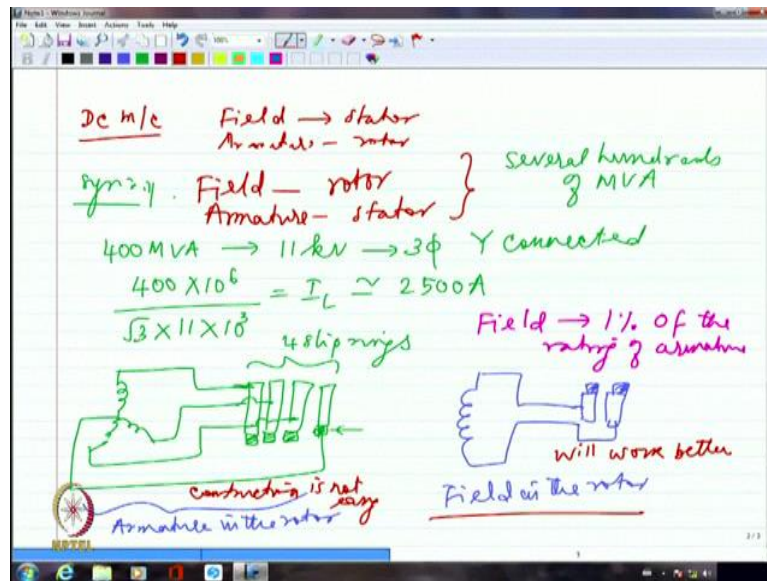 Note1 - Windows Journal
File Edit View Insert Actions Tools Help
Dc m/c Field → stator
Armature - rotor
Field - rotor
Armature - stator
several hundreds
of MVA
400 MVA → 11 kV → 3ϕ Y connected
400 X 10^6 / √3 X 11 X 10^3 = I_L ≃ 2500A
Field → 1% of the
rating of armature
4 slip rings
will work better
construction is not
easy
Armature in the rotor
Field in the rotor
NPTEL